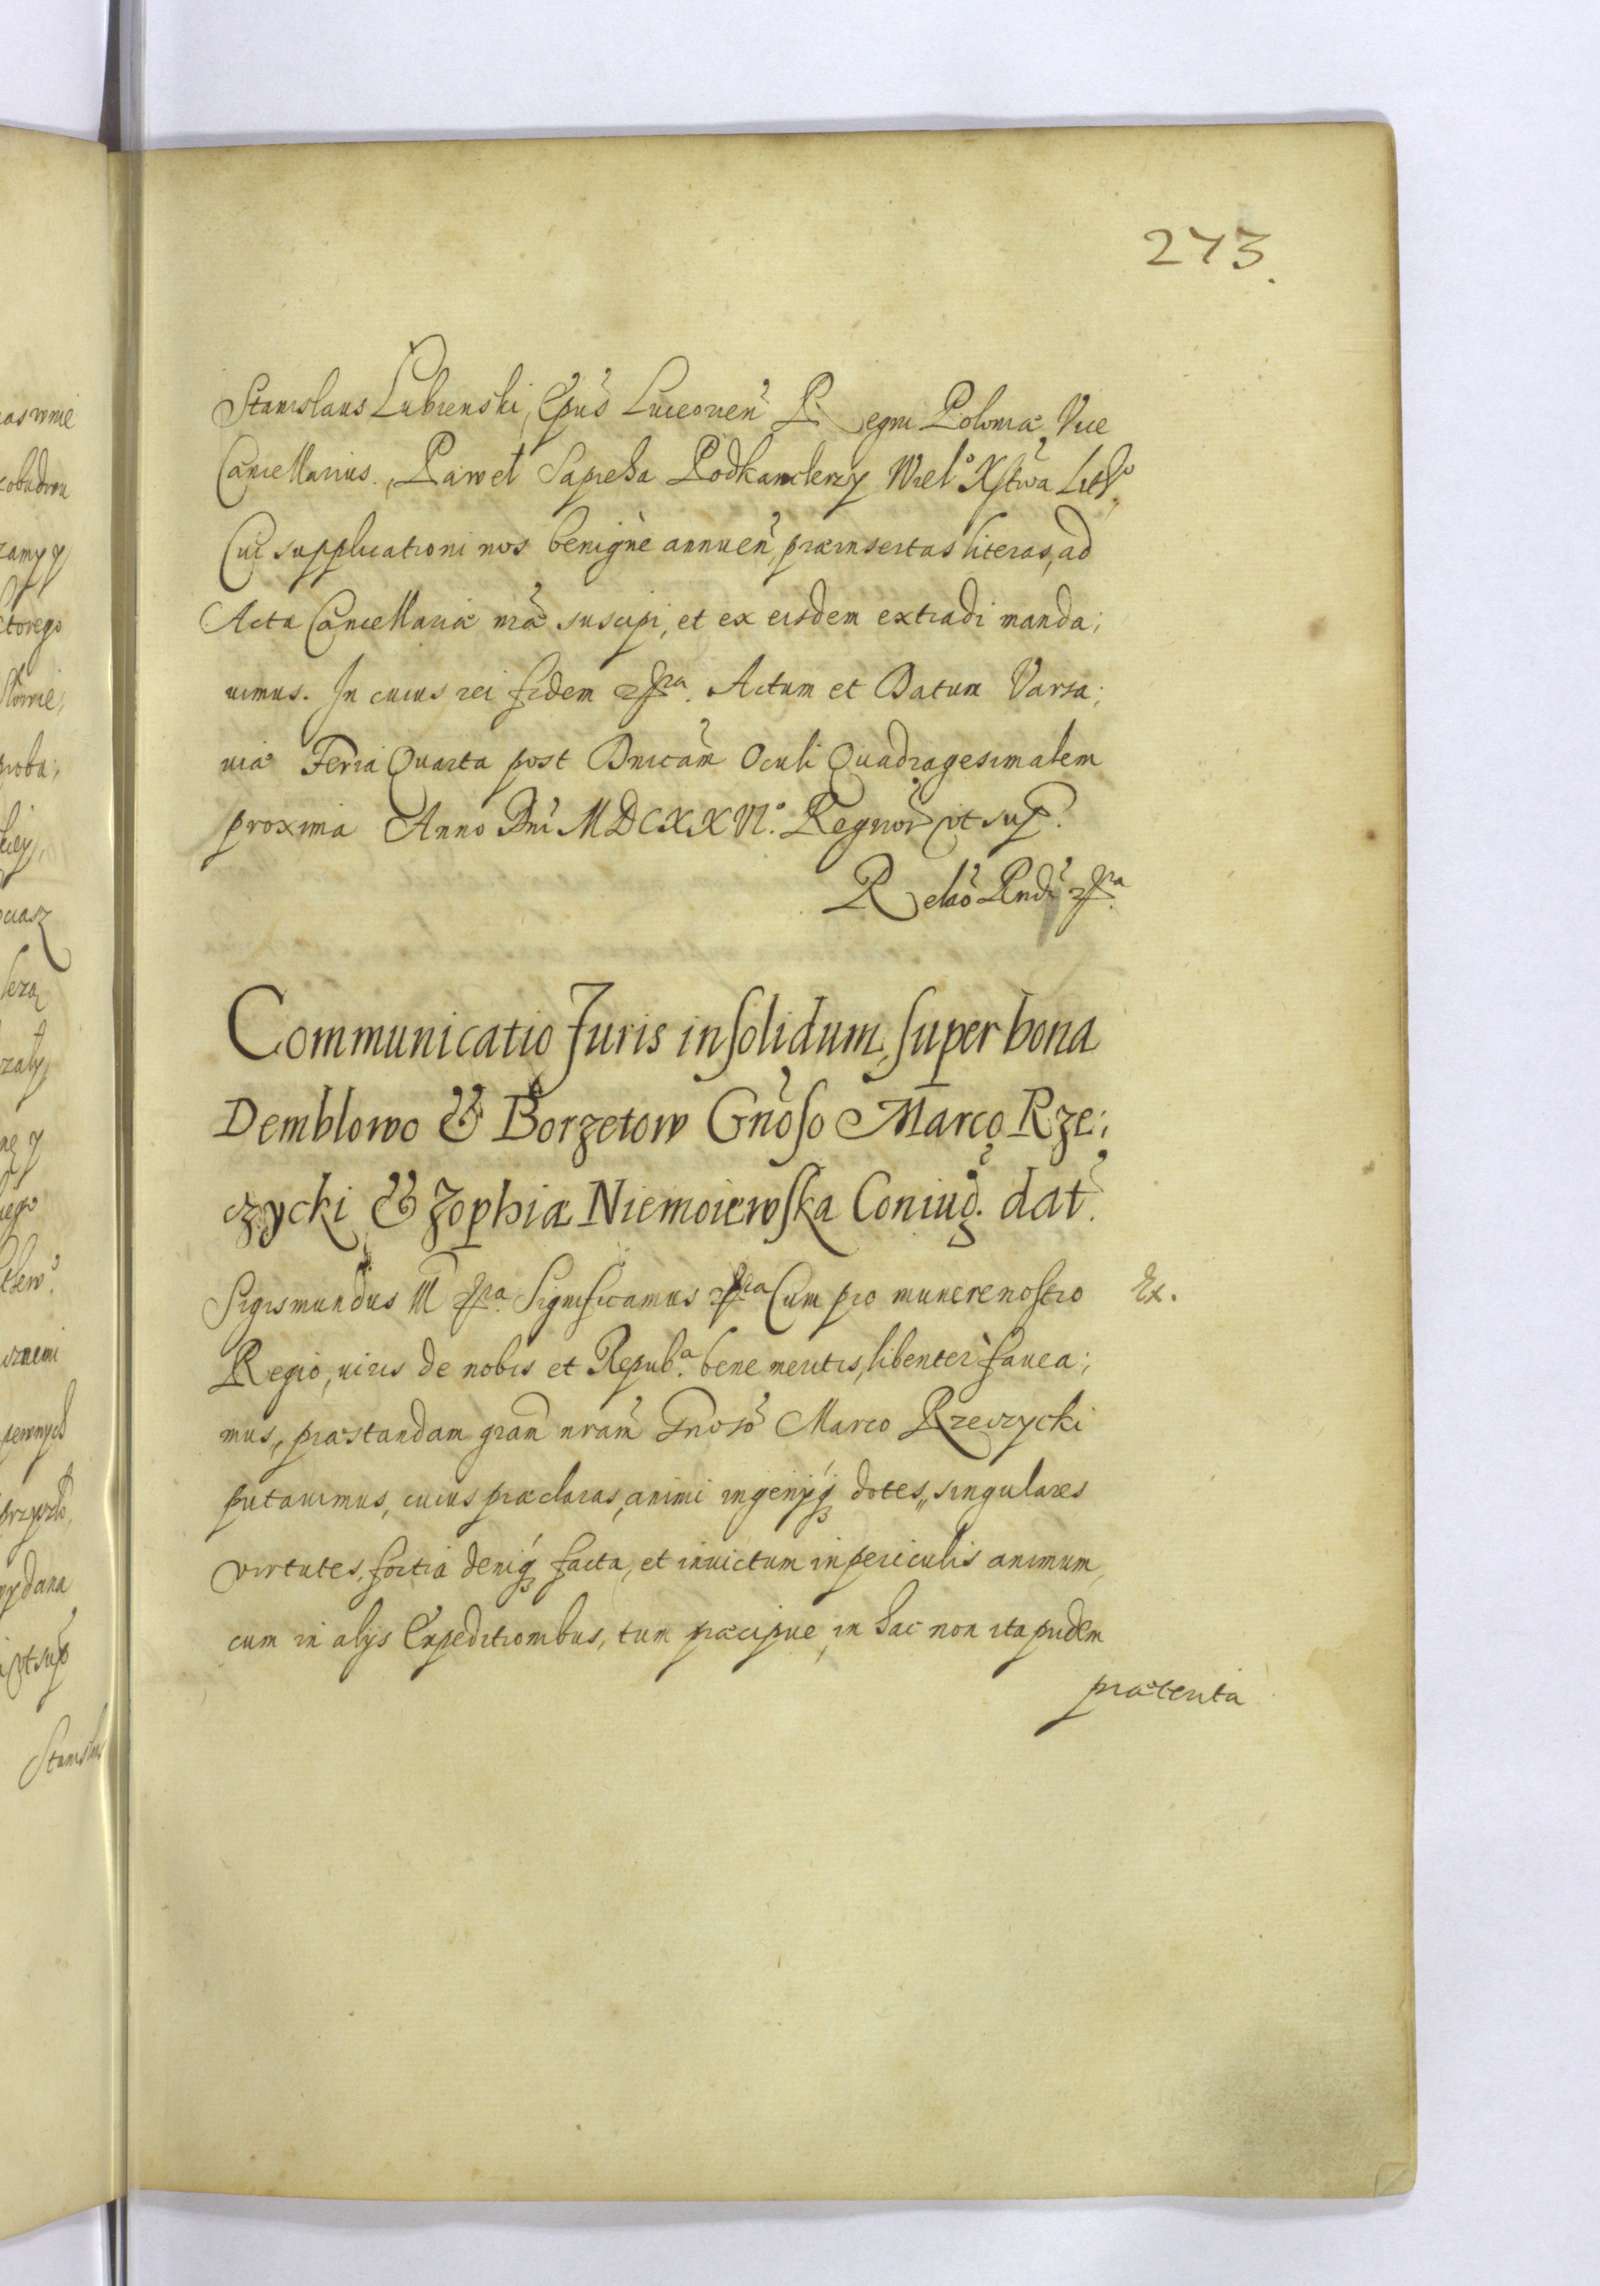 273.
Stanislaus Lubienski, Epũs Luceorieñ Regni Poloniæ Vice
Cancellarius. Paweł Sapieha Podkanclerzy Wiel° Xstwa Lith°
Cui supplicationi nos benignè annueñ, præinsertas literas, ad
Acta Cancellariæ nrã suscipi, et ex eisdem extradi manda;
uimus. In cuius rei fidem ꝛpra. Actum et Datum Varsa;
uiæ Feria Quarta post Dnicam̃ Oculi Quadragesimalem
proxima Anno Dni MDCXXVI.° Regnor̃ vt sup.
Relaõ Rndi ꝛpra.
Communicatio Juris insolidum, super bona
Demblowo & Borzetow Gñoso Marco Rze;
czycki & Zophiæ Niemoiewska Coniug. dat.
Sigismundus III ꝛpra. Significamus ꝛpra Cum pro munere nostro
Ex.
Regio, uiris de nobis et Repub.ª bene meritis, libentèr fauea;
mus, præstandam grañ nram̃ Gnosõ Marco Rzeczycki
putauimus, cuius præclaras, animi ingenijq̃ dotes, singulares
virtutes, fortia deniq̃ facta, et inuictum in periculis animum,
cum in alijs Expeditionibus, tum præcipue, in hac non ita pridem
præterita
aswnie
zamy y
ktorego
proba;
leza
ne y
pewnych
wydana
vt sup
Stanislaus